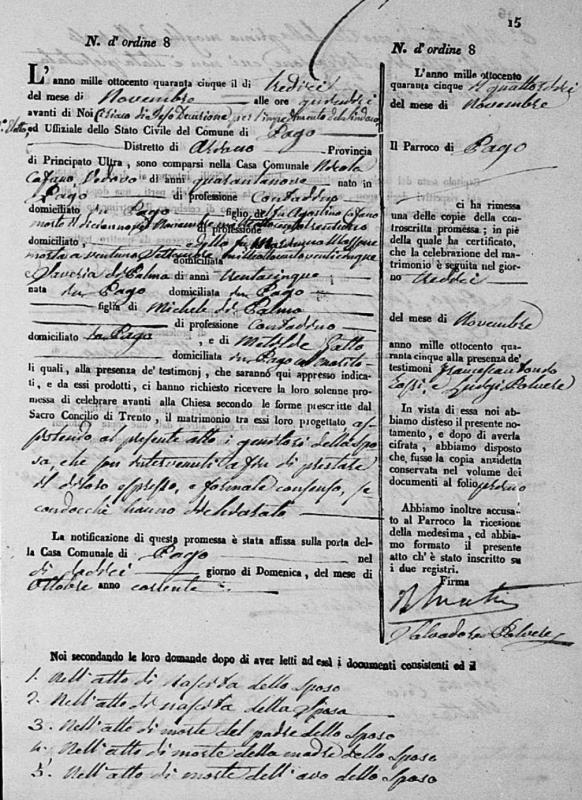 15
N. d'ordine 8
L'anno mille ottocento quaranta cinque il di tredici
del mese di Novembre alle ore quindici
avanti di Noi
ed Uffiziale dello Stato Civile del Comune di Pago
Distretto di Provincia
di Principato Ultra, sono comparsi nella Casa Comunale Nicola
Cafano, Vedovo di anni quarantanove nato in
Pago di professione Contadino
domiciliato in Pago figlio del fu Agostino Cafano
morto
di professione
domiciliato e della fu
morta a ventuno Settembre milleottocentoventicinque
domiciliata
e Saveria di Palma di anni trentacinque
nata in Pago domiciliata in Pago
figlia di Michele di Palma
di professione Contadino
domiciliato in Pago, e di Matilde Gallo
domiciliata in Pago
li quali, alla presenza de' testimonj, che saranno qui appresso indica-
ti, e da essi prodotti, ci hanno richiesto ricevere la loro solenne pro-
messa di celebrare avanti alla Chiesa secondo le forme prescritte dal
Sacro Concilio di Trento, il matrimonio tra essi loro progettato as-
sistendo al presente atto i genitori della Spo-
sa, che son intervenuti a fin di prestare
il di loro espresso, e formale consenso, se-
condocchè hanno dichiarato
La notificazione di questa promessa è stata affissa sulla porta del-
la Casa Comunale di Pago nel
di dodici giorno di Domenica, del mese di
Ottobre anno corrente
N. d'ordine 8
L'anno mille ottocento
quaranta cinque il quattordici
del mese di Novembre
Il Parroco di Pago
ci ha rimessa
una delle copie della con-
troscritta promessa; in piè
della quale ha certificato,
che la celebrazione del ma-
trimonio è seguita nel gior-
no tredici
del mese di Novembre
anno mille ottocento qua-
ranta cinque alla presenza de'
testimonj Francescantonio
e Luigi Polvere
In vista di essa noi ab-
biamo disteso il presente no-
tamento, e dopo di averla
cifrata, abbiamo disposto
che, fusse la copia anzidetta
conservata nel volume dei
documenti al folio primo
Abbiamo inoltre accusa-
to al Parroco la ricezione
della medesima, ed abbia-
mo formato il presente
atto ch'è stato inscritto su
i due registri.
Firma
Salvadore Polvere
Noi secondando le loro domande dopo di aver letti ad essi i documenti consistenti ed il
1. Nell'atto di nascita dello Sposo
2. Nell'atto di nascita della Sposa
3. Nell'atto di morte del padre dello Sposo
4. Nell'atto di morte della madre dello Sposo
5. Nell'atto di morte dell'avo dello Sposo